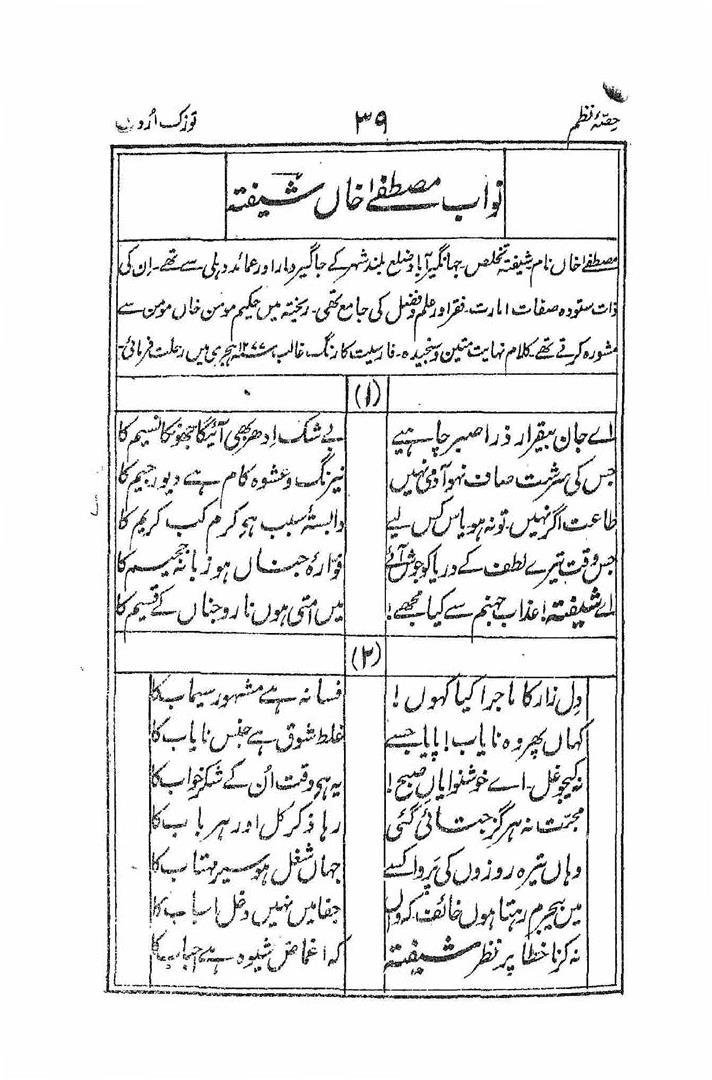 حصّۂ نظم ۳۹ توزک اُردو
نواب مصطفےٰ خاں شیفتہ
مصطفےٰ خاں نام شیفتہ تخلص۔ جہانگیر آباد ضلع بلند شہر کے جاگیردار اور عمائد دہلی سے تھے۔ ان کی
ذات ستودہ صفات امارت۔ فقر اور علم و فضل کی جامع تھی۔ ریختہ میں حکیم مومن خاں مومن سے
مشورہ کرتے تھے۔ کلام نہایت متین و سنجیدہ۔ فارسیت کا رنگ غالب ہے ۱۲۷۷ ہجری میں رحلت فرمائی۔
(۱)
اے جان بیقرار ذرا صبر چاہیے بے شک اِدھر بھی آئیگا جھونکا نسیم کا
جس کی سرشت صاف نہو آدمی نہیں نیرنگ و عشوہ کام ہے دیو رجیم کا
طاعت اگر نہیں۔ تو نہ ہو یاس کس لیے وابستۂ سبب ہو کرم کب کریم کا
جس وقت تیرے لطف کے دریا کو جوش آئے فوّارۂ جناں ہو زبانہ جحیم کا
اے شیفتہ! عذاب جہنم سے کیا مجھے! میں امتی ہوں نار و جناں کے قسیم کا
(۲)
دل زار کا ماجرا کیا کہوں! فسانہ ہے مشہور سیماب کا
کہاں پھر وہ نایاب! پایا جسے غلط شوق ہے جنس نایاب کا
نہ کیجو غل۔ اے خوشنوایانِ صبح! یہ ہے وقت اُن کے شکر خواب کا
محبّت نہ ہرگز جتائی گئی رہا ذکر کل اور ہر باب کا
وہاں تیرہ روزوں کی پروا کسے جہاں شغل ہو سیر مہتاب کا
میں بیجرم رہتا ہوں خائف کہ واں جفا میں نہیں دخل اسباب کا
نہ کرنا خطا پر نظر شیفتہ کہ اغماض شیوہ ہے احباب کا